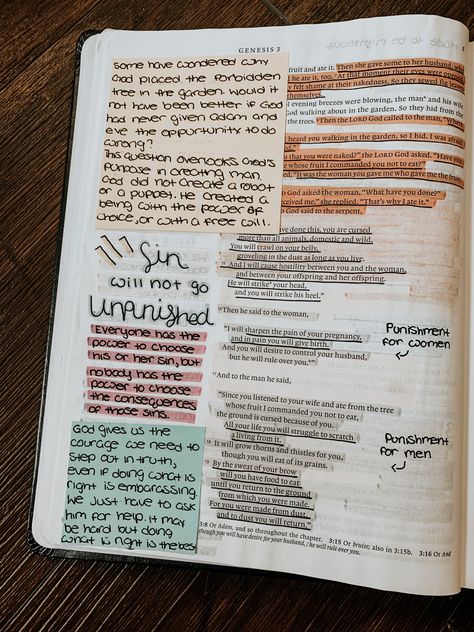 GENESIS 3
some have wondered why
God placed the forbidden
tree in the garden. Would it
not have been better if God
had never given adam and
eve the oppurtunity to do
wrong?
This question overlooks God's
purpose in creating man.
God did not create a robot
or a puppet. He created a
being with the power OF
choice, or with a free will.
Sin
will not go
Unpunished
Everyone has the
power to choose
his or her sin, but
nobody has the
power to choose
the consequences
of those sins.
God gives us the
courage we need to
step out in truth,
even if doing what is
right is embarassing.
We just have to ask
him for help. it may
be hard but doing
what is right is the best
fruit and ate it. Then she gave some to her husband, who
he ate it, too. At that moment their eyes were opened
y felt shame at their nakedness. So they sewed fig leaves
themselves.
evening breezes were blowing, the man* and his wife
God walking about in the garden. So they hid from the
the trees. Then the LORD God called to the man, "Where
heard you walking in the garden, so I hid. I was afraid
that you were naked?" the LORD God asked. "Have you
whose fruit I commanded you not to eat?"
"It was the woman you gave me who gave me the fruit
God asked the woman, "What have you done?"
deceived me," she replied. "That's why I ate it."
God said to the serpent,
have done this, you are cursed
more than all animals, domestic and wild.
You will crawl on your belly,
groveling in the dust as long as you live.
And I will cause hostility between you and the woman,
and between your offspring and her offspring.
He will strike* your head,
and you will strike his heel."
Then he said to the woman,
"I will sharpen the pain of your pregnancy,
and in pain you will give birth.
And you will desire to control your husband,
but he will rule over you.*"
Punishment
for women
And to the man he said,
"Since you listened to your wife and ate from the tree
whose fruit I commanded you not to eat,
the ground is cursed because of you.
All your life you will struggle to scratch
a living from it.
It will grow thorns and thistles for you,
though you will eat of its grains.
By the sweat of your brow
will you have food to eat
until you return to the ground
from which you were made.
For you were made from dust,
and to dust you will return."
Punishment
for men
3:8 Or Adam, and so throughout the chapter. 3:15 Or bruise; also in 3:15b. 3:16 Or And
though you will have desire for your husband, / he will rule over you.